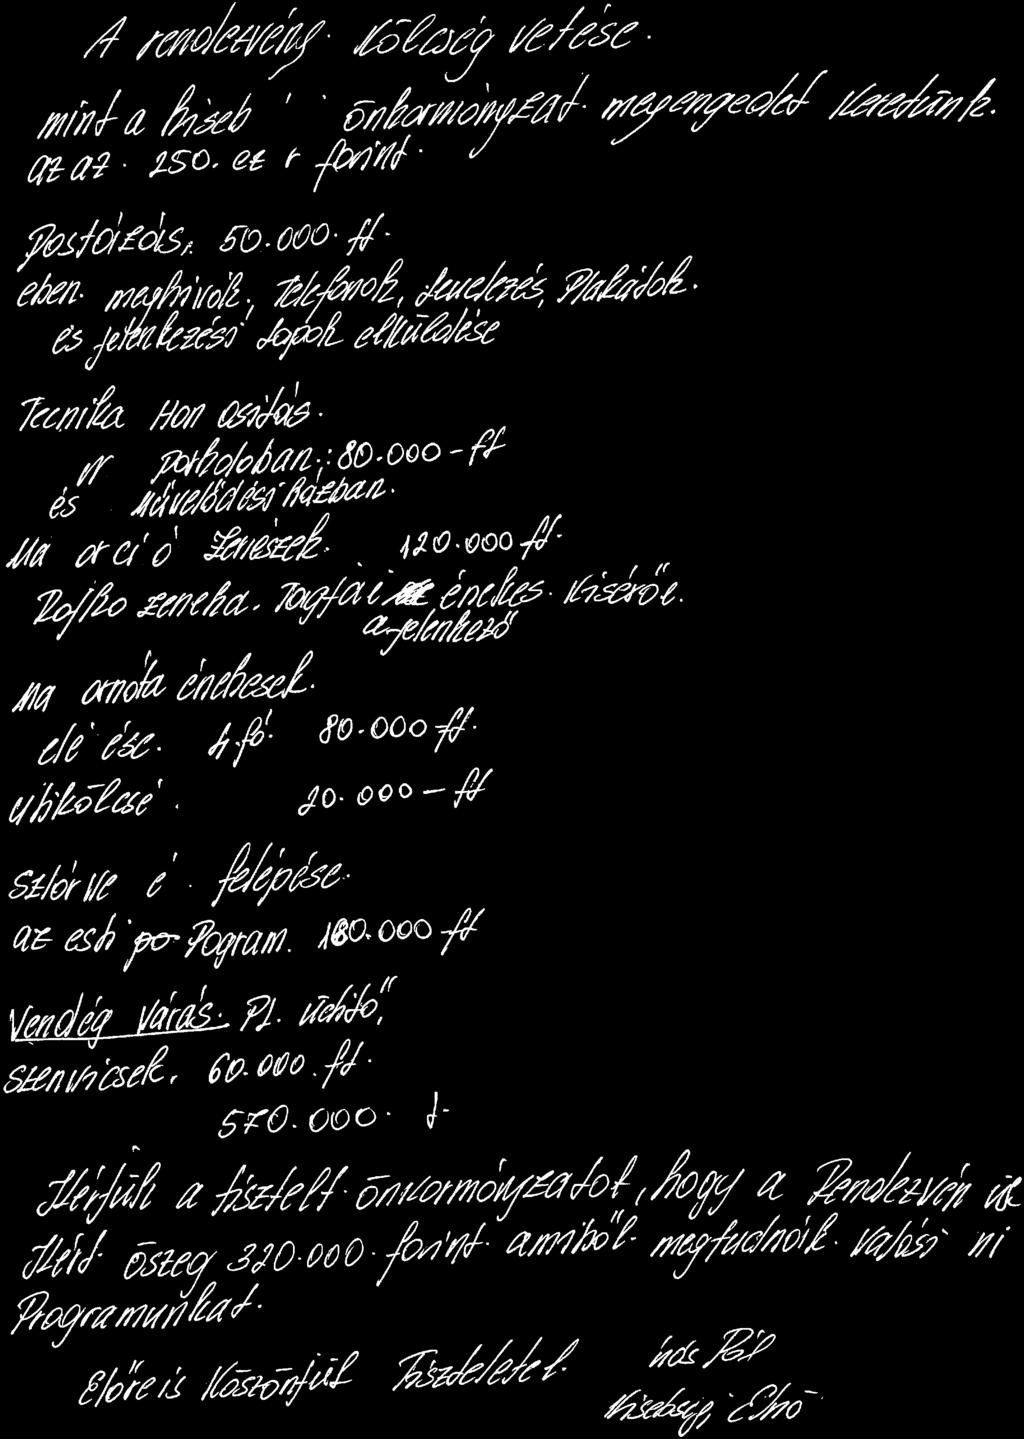 A rendezvény. Kölcség vetése.
mint a kiseb önkormányzat. megengedet Keretünk.
az az. 250. ez r forint.
Postázás. 50.000. ft.
eben. meghivók, Telefonok, Levelezés, Plakátok.
és jelenkezési Lapok elküldése
Tecnika Hon ositás.
parkoloban: 80.000-ft
és Müvelődési Házban.
Ma or ci ó Zenészek. 120.000 ft.
Rajko zeneka. Tagjai énekes. Kisérői.
a jelenkező
Ma arnóta énekesek.
elé ése. 4.fó. 80.000 ft.
utikölcsé. 20.000-ft
felépése.
az esti Pogram. 180.000-ft
Vendég Várás. Pl. üditő,
szenvicsek. 60.000. ft.
570.000. t.
Kérjük a tisztelt. önkormányzatot, hogy a Rendezvén
Kért. öszeg 320.000. forint. amiből. megtudnók. valósi ni
Programunkat.
Előre is Köszönjük Tisztelettel. Pál
Kisebségi Elnö